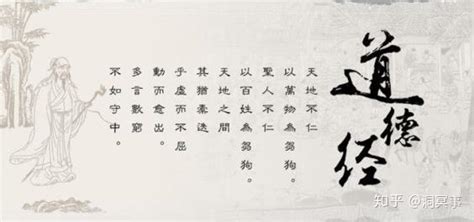 道德经
天地不仁
以萬物為芻狗。
聖人不仁
以百姓為芻狗。
天地之間
其猶橐
乎虛而不屈
動而愈出。
多言數窮
不如守中。
知乎 @洞冥事